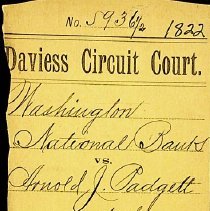 No. 5936½ 1822
Daviess Circuit Court.
Washington
National Bank
vs.
Arnold J. Padgett